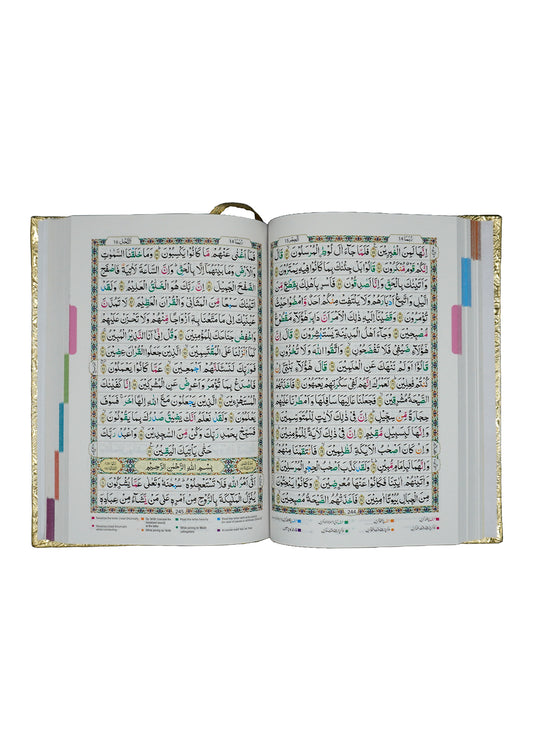 رُبَمَا ١٤
الحجر ١٥
اِنَّهَا لَمِنَ الْغٰبِرِيْنَ فَلَمَّا جَآءَ اٰلَ لُوْطِ ۨالْمُرْسَلُوْنَ قَالَ
اِنَّكُمْ قَوْمٌ مُّنْكَرُوْنَ قَالُوْا بَلْ جِئْنٰكَ بِمَا كَانُوْا فِيْهِ يَمْتَرُوْنَ
وَاَتَيْنٰكَ بِالْحَقِّ وَاِنَّا لَصٰدِقُوْنَ فَاَسْرِ بِاَهْلِكَ بِقِطْعٍ مِّنَ
الَّيْلِ وَاتَّبِعْ اَدْبَارَهُمْ وَلَا يَلْتَفِتْ مِنْكُمْ اَحَدٌ وَّامْضُوْا حَيْثُ
تُؤْمَرُوْنَ وَقَضَيْنَآ اِلَيْهِ ذٰلِكَ الْاَمْرَ اَنَّ دَابِرَ هٰٓؤُلَآءِ مَقْطُوْعٌ
مُّصْبِحِيْنَ وَجَآءَ اَهْلُ الْمَدِيْنَةِ يَسْتَبْشِرُوْنَ قَالَ اِنَّ
هٰٓؤُلَآءِ ضَيْفِيْ فَلَا تَفْضَحُوْنِ وَاتَّقُوا اللّٰهَ وَلَا تُخْزُوْنِ
قَالُوْٓا اَوَلَمْ نَنْهَكَ عَنِ الْعٰلَمِيْنَ قَالَ هٰٓؤُلَآءِ بَنٰتِيْٓ اِنْ
كُنْتُمْ فٰعِلِيْنَ لَعَمْرُكَ اِنَّهُمْ لَفِيْ سَكْرَتِهِمْ يَعْمَهُوْنَ فَاَخَذَتْهُمُ
الصَّيْحَةُ مُشْرِقِيْنَ فَجَعَلْنَا عَالِيَهَا سَافِلَهَا وَاَمْطَرْنَا عَلَيْهِمْ
حِجَارَةً مِّنْ سِجِّيْلٍ اِنَّ فِيْ ذٰلِكَ لَاٰيٰتٍ لِّلْمُتَوَسِّمِيْنَ
وَاِنَّهَا لَبِسَبِيْلٍ مُّقِيْمٍ اِنَّ فِيْ ذٰلِكَ لَاٰيَةً لِّلْمُؤْمِنِيْنَ
وَاِنْ كَانَ اَصْحٰبُ الْاَيْكَةِ لَظٰلِمِيْنَ فَانْتَقَمْنَا مِنْهُمْ
وَاِنَّهُمَا لَبِاِمَامٍ مُّبِيْنٍ وَلَقَدْ كَذَّبَ اَصْحٰبُ الْحِجْرِ
الْمُرْسَلِيْنَ وَاٰتَيْنٰهُمْ اٰيٰتِنَا فَكَانُوْا عَنْهَا مُعْرِضِيْنَ وَكَانُوْا يَنْحِتُوْنَ
مِنَ الْجِبَالِ بُيُوْتًا اٰمِنِيْنَ فَاَخَذَتْهُمُ الصَّيْحَةُ مُصْبِحِيْنَ
244
رُبَمَا ١٤
النَّحْل ١٦
فَمَآ اَغْنٰى عَنْهُمْ مَّا كَانُوْا يَكْسِبُوْنَ وَمَا خَلَقْنَا السَّمٰوٰتِ
وَالْاَرْضَ وَمَا بَيْنَهُمَآ اِلَّا بِالْحَقِّ وَاِنَّ السَّاعَةَ لَاٰتِيَةٌ فَاصْفَحِ
الصَّفْحَ الْجَمِيْلَ اِنَّ رَبَّكَ هُوَ الْخَلّٰقُ الْعَلِيْمُ وَلَقَدْ
اٰتَيْنٰكَ سَبْعًا مِّنَ الْمَثَانِيْ وَالْقُرْاٰنَ الْعَظِيْمَ لَا تَمُدَّنَّ
عَيْنَيْكَ اِلٰى مَا مَتَّعْنَا بِهٖٓ اَزْوَاجًا مِّنْهُمْ وَلَا تَحْزَنْ عَلَيْهِمْ
وَاخْفِضْ جَنَاحَكَ لِلْمُؤْمِنِيْنَ وَقُلْ اِنِّيْٓ اَنَا النَّذِيْرُ الْمُبِيْنُ
كَمَآ اَنْزَلْنَا عَلَى الْمُقْتَسِمِيْنَ الَّذِيْنَ جَعَلُوا الْقُرْاٰنَ عِضِيْنَ
فَوَرَبِّكَ لَنَسْـَٔلَنَّهُمْ اَجْمَعِيْنَ عَمَّا كَانُوْا يَعْمَلُوْنَ
فَاصْدَعْ بِمَا تُؤْمَرُ وَاَعْرِضْ عَنِ الْمُشْرِكِيْنَ اِنَّا كَفَيْنٰكَ
الْمُسْتَهْزِءِيْنَ الَّذِيْنَ يَجْعَلُوْنَ مَعَ اللّٰهِ اِلٰهًا اٰخَرَ فَسَوْفَ
يَعْلَمُوْنَ وَلَقَدْ نَعْلَمُ اَنَّكَ يَضِيْقُ صَدْرُكَ بِمَا يَقُوْلُوْنَ
فَسَبِّحْ بِحَمْدِ رَبِّكَ وَكُنْ مِّنَ السّٰجِدِيْنَ وَاعْبُدْ رَبَّكَ
حَتّٰى يَاْتِيَكَ الْيَقِيْنُ
بِسْمِ اللّٰهِ الرَّحْمٰنِ الرَّحِيْمِ
اَتٰٓى اَمْرُ اللّٰهِ فَلَا تَسْتَعْجِلُوْهُ سُبْحٰنَهٗ وَتَعٰلٰى عَمَّا يُشْرِكُوْنَ
يُنَزِّلُ الْمَلٰٓئِكَةَ بِالرُّوْحِ مِنْ اَمْرِهٖ عَلٰى مَنْ يَّشَآءُ مِنْ عِبَادِهٖٓ
245